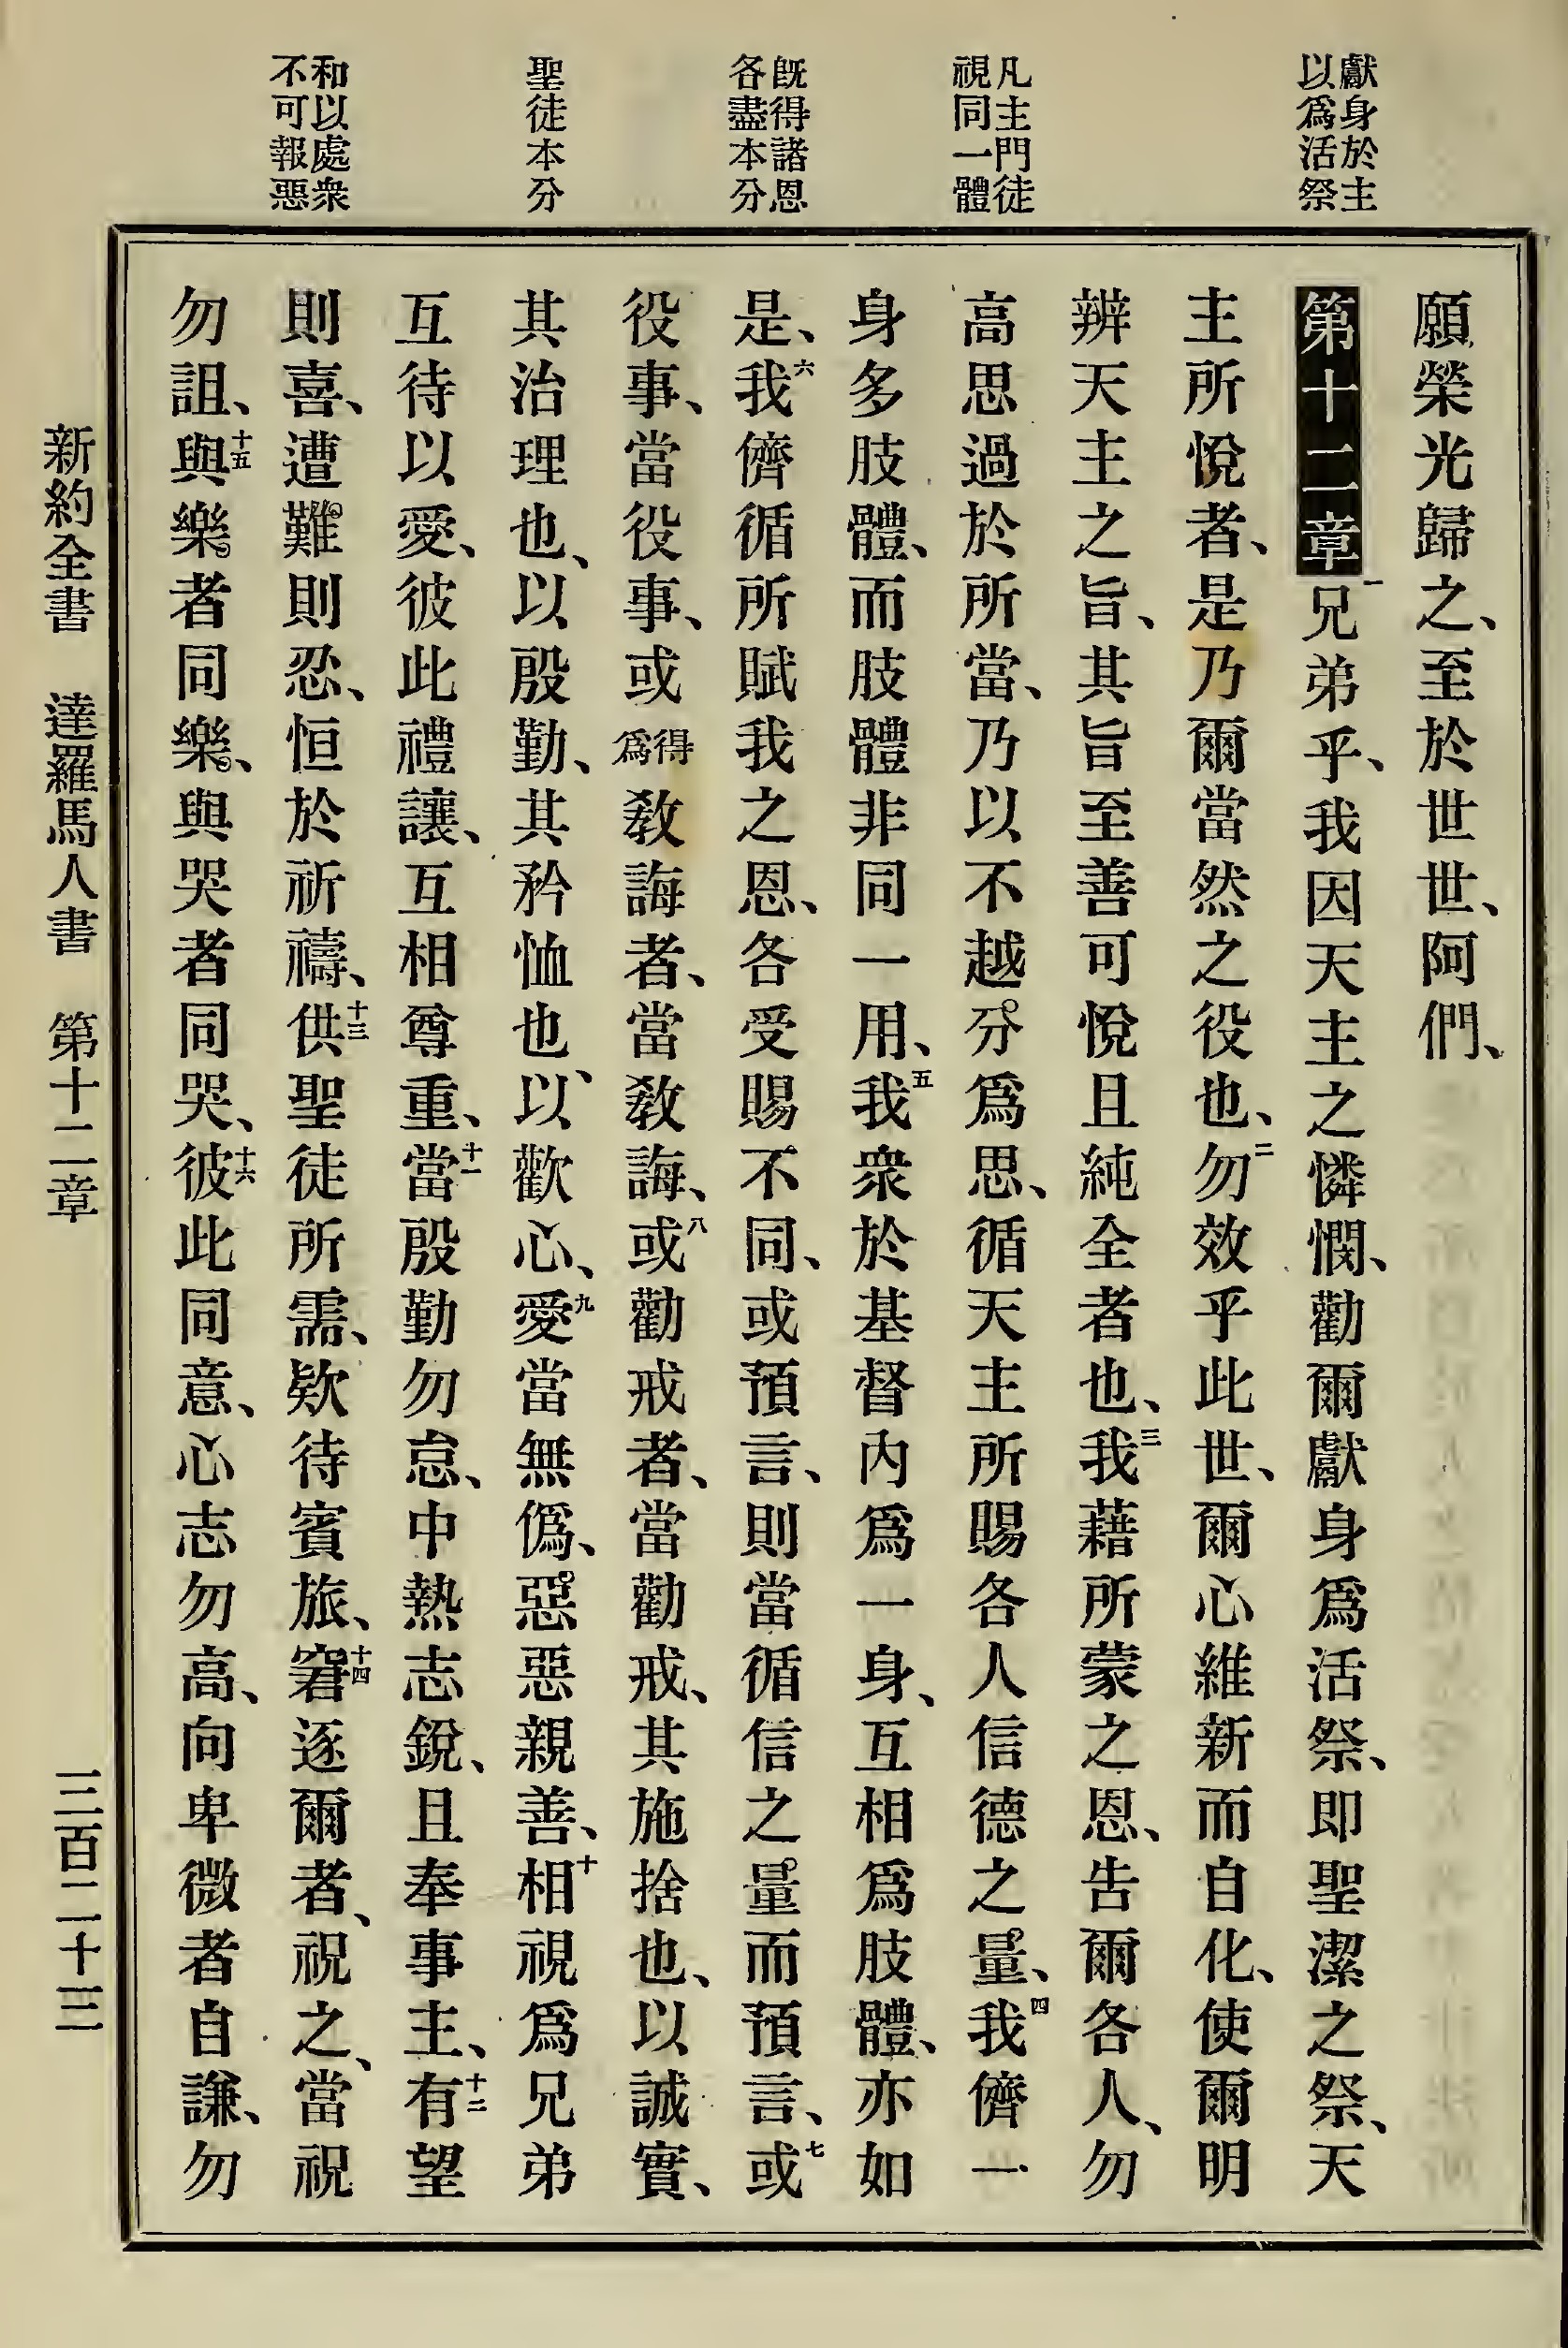 獻身於主
以爲活祭
凡主門徒
視同一體
既得諸恩
各盡本分
聖徒本分
和以處衆
不可報惡
願榮光歸之、至於世世、阿們、
第十二章 一兄弟乎、我因天主之憐憫、勸爾獻身爲活祭、即聖潔之祭、天
主所悅者、是乃爾當然之役也、二勿效乎此世、爾心維新而自化、使爾明
辨天主之旨、其旨至善可悅且純全者也、三我藉所蒙之恩、告爾各人、勿
高思過於所當、乃以不越分爲思、循天主所賜各人信德之量、四我儕一
身多肢體、而肢體非同一用、五我衆於基督內爲一身、互相爲肢體、亦如
是、六我儕循所賦我之恩、各受賜不同、或預言、則當循信之量而預言、七或
役事、當役事、或得爲教誨者、當教誨、八或勸戒者、當勸戒、其施捨也、以誠實、
其治理也、以殷勤、其矜恤也、以歡心、九愛當無僞、惡惡親善、十相視爲兄弟
互待以愛、彼此禮讓、互相尊重、十一當殷勤勿怠、中熱志銳、且奉事主、十二有望
則喜、遭難則忍、恒於祈禱、十三供聖徒所需、欵待賓旅、十四窘逐爾者、祝之、當祝
勿詛、十五與樂者同樂、與哭者同哭、十六彼此同意、心志勿高、向卑微者自謙、勿
新約全書 達羅馬人書 第十二章 三百二十三